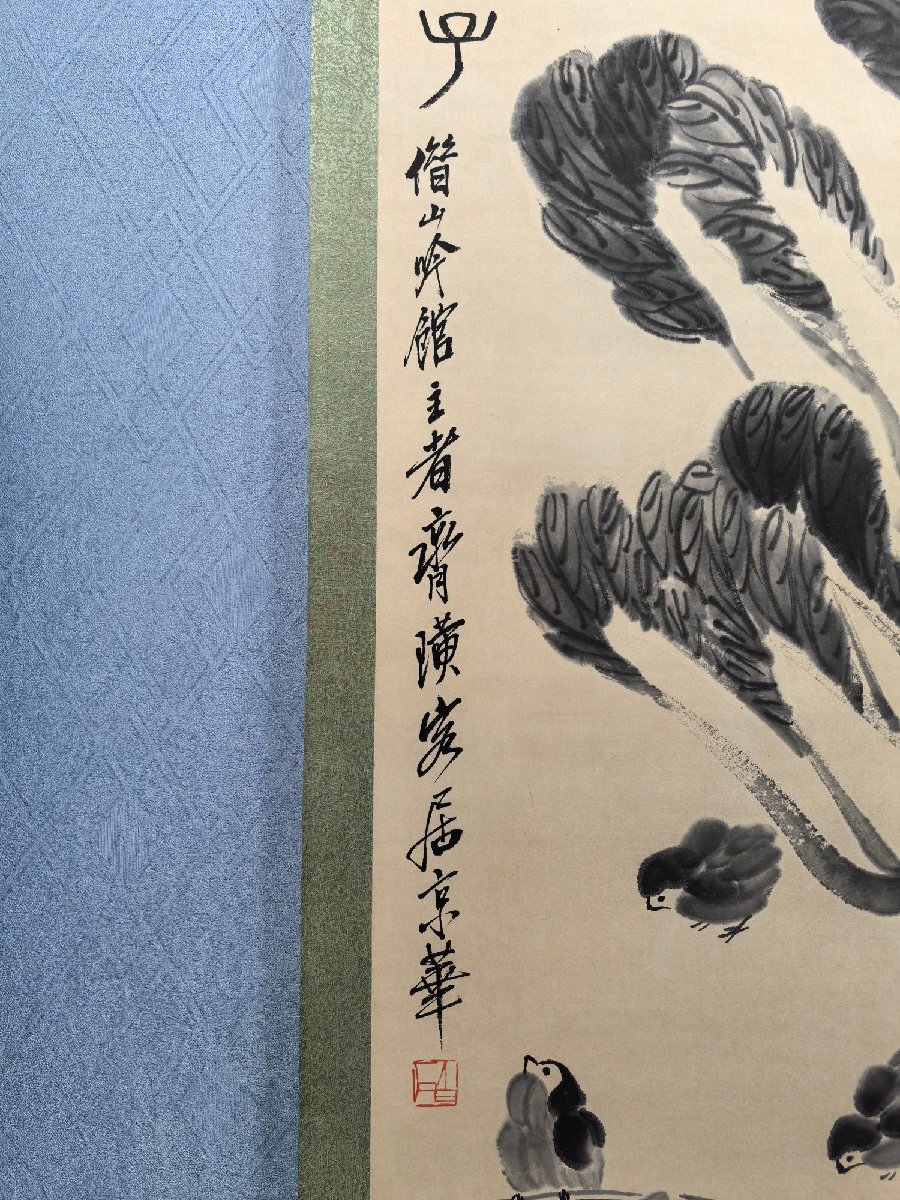 子
借山吟館主者齊璜客居京華